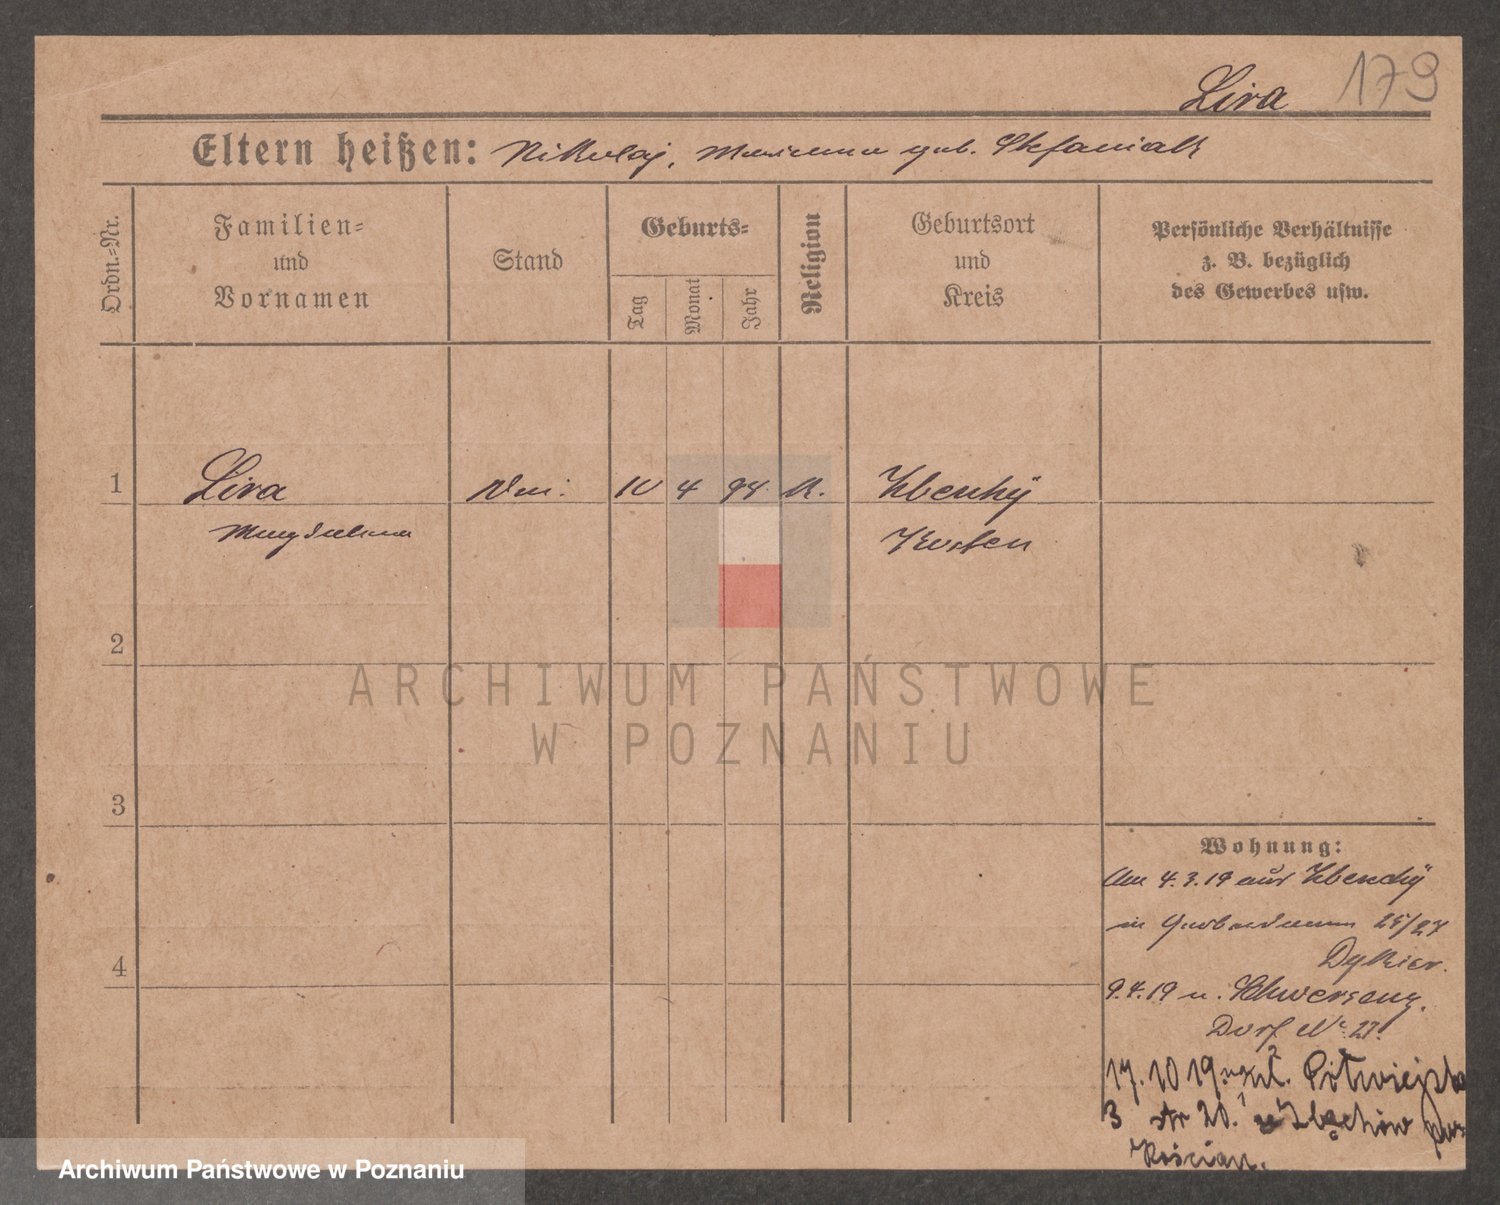 Lira 179
Eltern heißen: Nikolaj, Marianna geb. Stefaniak
Ordn.-Nr.
Familien-
und
Vornamen
Stand
Geburts-
Tag
Monat
Jahr
Religion
Geburtsort
und
Kreis
Persönliche Verhältnisse
z. B. bezüglich
des Gewerbes usw.
1 Lira 10 4 94 K. Zbenchy
Magdalena Kosten
2
3
4
Wohnung:
Am 4.3.19 aus Zbenchy
in 25/27
Dykier.
9.4.19 n. Schwersenz,
Dorf No 27.
17.10 19. Półwiejska
3 str 20. Zbęchów pow
Kościan.
ARCHIWUM PAŃSTWOWE
W POZNANIU
Archiwum Państwowe w Poznaniu